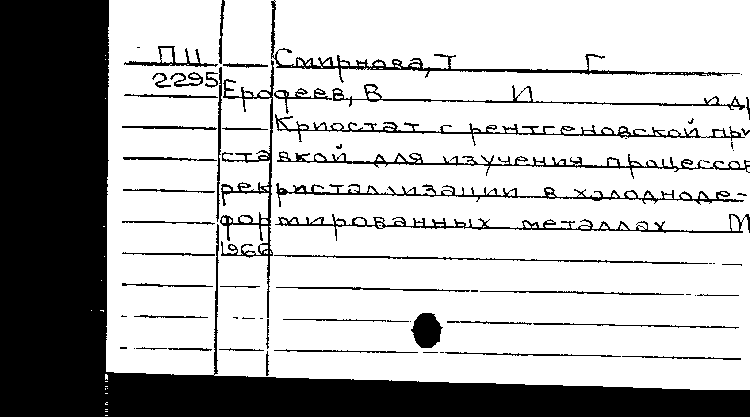 ПЦ Смирнова, Т Г
2295 Ерофеев, В И и др
Криостат с рентгеновской при
ставкой для изучения процессов
рекристаллизации в холодноде-
формированных металлах М
1966